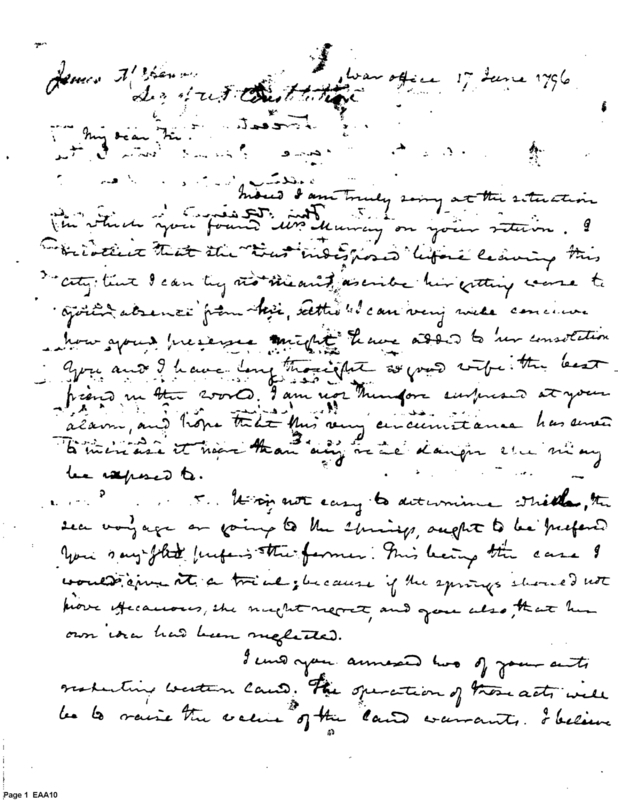 James McHenry War office 17 June 1796
Constitution
My dear Sir.
Indeed I am truly sorry at the situation
in which you found Mrs Murray on your return. I
recollect that she was indisposed before leaving this
city but I can by no means ascribe her getting worse to
your absence from her, altho' I can very well conceive
how your presence might have added to her consolation
You and I have long thought a good wife the best
friend in the world. I am not therefore surprised at your
alarm, and hope that this very circumstance has served
to increase it more than any real danger she may
be exposed to.
It is not easy to determine whether the
sea voyage or going to the springs, ought to be preferred
You say she prefers the former. This being the case I
would give it a trial; because if the springs should not
prove efficacious, she might regret, and you also, that her
own idea had been neglected.
I send you annexed two of your acts
respecting western land. The operation of those acts will
be to raise the value of the land warrants. I believe
Page 1 EAA10